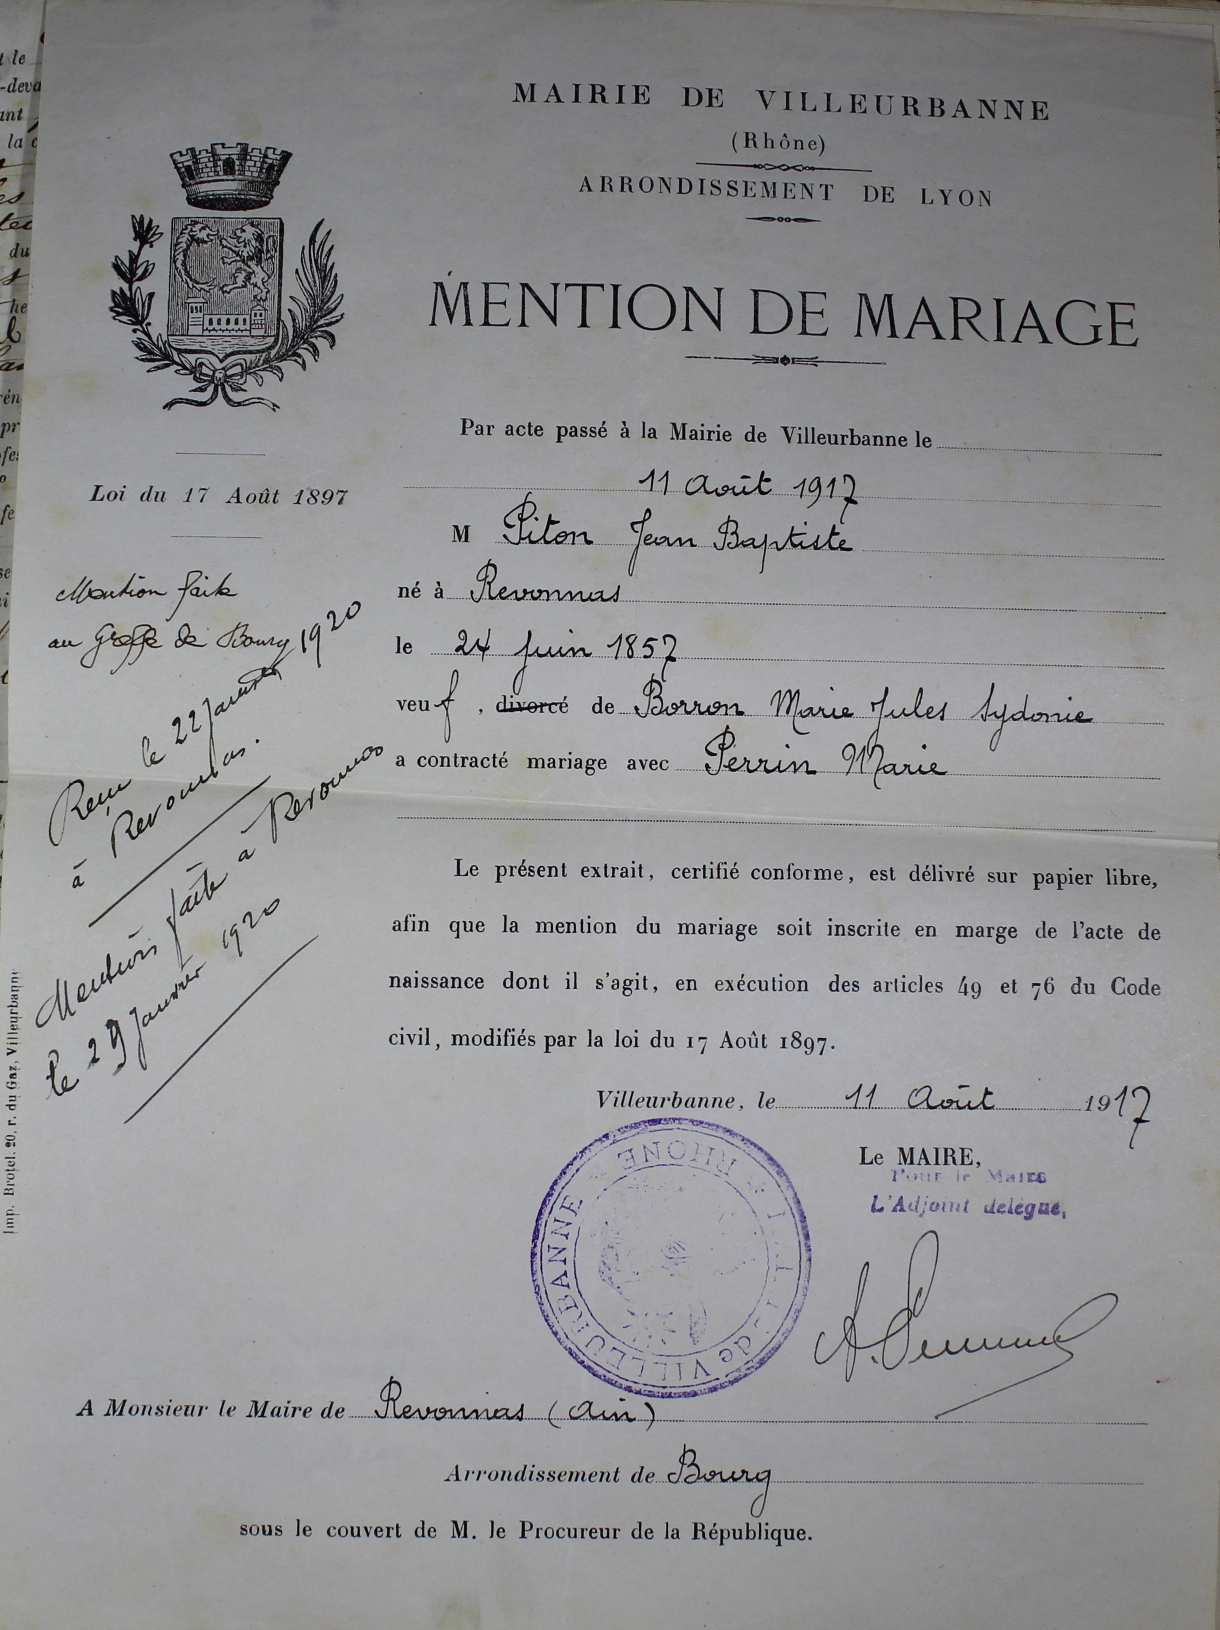 MAIRIE DE VILLEURBANNE
(Rhône)
ARRONDISSEMENT DE LYON
MENTION DE MARIAGE
Loi du 17 Août 1897
Mention faite
au Greffe de Bourg
Reçu le 22 Janvier 1920
à Revonnas.
Mention faite à Revonnas
le 29 Janvier 1920
Par acte passé à la Mairie de Villeurbanne le
11 Août 1917
M Piton Jean Baptiste
né à Revonnas
le 24 Juin 1857
veuf, divorcé de Borron Marie Jules Sydonie
a contracté mariage avec Perrin Marie
Le présent extrait, certifié conforme, est délivré sur papier libre,
afin que la mention du mariage soit inscrite en marge de l'acte de
naissance dont il s'agit, en exécution des articles 49 et 76 du Code
civil, modifiés par la loi du 17 Août 1897.
Villeurbanne, le 11 Août 1917
Le MAIRE,
Pour le Maire
L'Adjoint délégué,
de VILLEURBANNE * RHONE *
A Monsieur le Maire de Revonnas (Ain)
Arrondissement de Bourg
sous le couvert de M. le Procureur de la République.
Imp. Brotel. 20, r. du Gaz, Villeurbanne